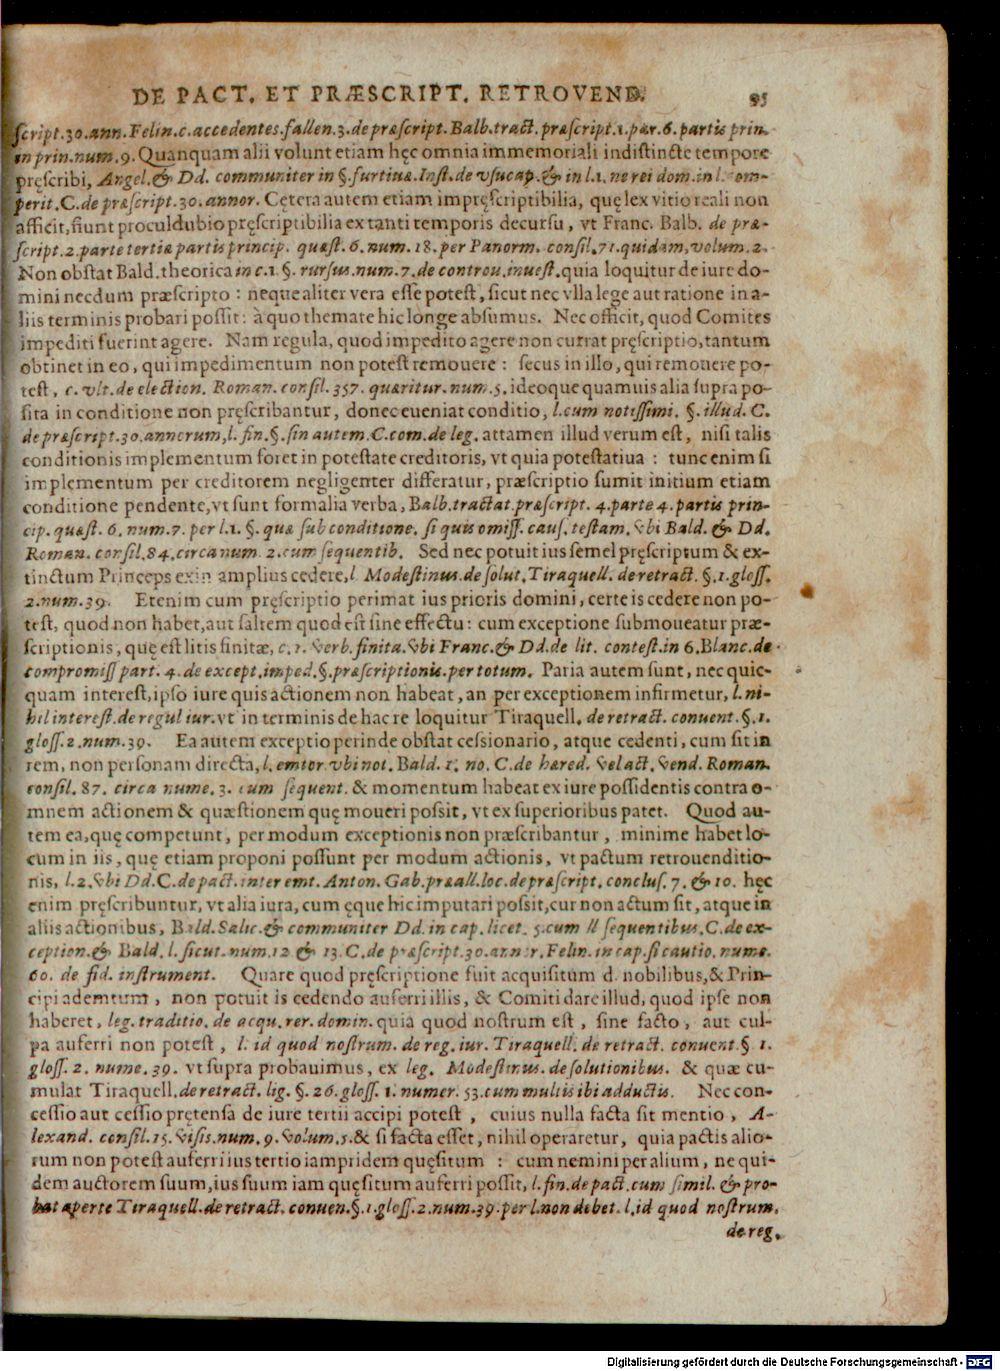 DE PACT. ET PRÆSCRIPT. RETROVEND. 95
script.30.ann.Felin.c.accedentes.fallen.3.de præscript.Balb.tract.præscript.1.par.6.partis prin.
in prin.num.9. Quanquam alii volunt etiam hęc omnia immemoriali indistincte tempore
pręscribi, Angel.& Dd. communiter in §.furtiuæ.Inst.de vsucap.& in l.1. ne rei dom.in l. com-
perit.C.de præscript.30.annor. Cętera autem etiam impręscriptibilia, quę lex vitio reali non
afficit, fiunt proculdubio pręscriptibilia ex tanti temporis decursu, vt Franc. Balb. de præ-
script.2.parte tertiæ partis princip. quæst. 6. num. 18. per Panorm. consil.71.quidam,volum.2.
Non obstat Bald. theorica in c.1. §. rursus.num.7.de controu.inuest.quia loquitur de iure do-
mini necdum præscripto : neque aliter vera esse potest, sicut nec vlla lege aut ratione in a-
liis terminis probari possit: à quo themate hic longe absumus. Nec officit, quod Comites
impediti fuerint agere. Nam regula, quod impedito agere non currat pręscriptio, tantum
obtinet in eo, qui impedimentum non potest remouere : secus in illo, qui remouere po-
test, c. vlt.de election. Roman. consil. 357. quæritur.num.5. ideoque quamuis alia supra po-
sita in conditione non pręscribantur, donec eueniat conditio, l.cum notissimi. §. illud. C.
de præscript.30.annorum,l. fin.§.sin autem.C.com.de leg. attamen illud verum est, nisi talis
conditionis implementum foret in potestate creditoris, vt quia potestatiua : tunc enim si
implementum per creditorem negligenter differatur, præscriptio sumit initium etiam
conditione pendente, vt sunt formalia verba, Balb.tractat.præscript. 4.parte 4.partis prin-
cip. quæst. 6. num.7. per l.1. §. quæ sub conditione. si quis omiss. caus. testam. vbi Bald. & Dd.
Roman. consil.84.circa num. 2.cum sequentib. Sed nec potuit ius semel pręscriptum & ex-
tinctum Princeps exin amplius cedere, l. Modestinus.de solut.Tiraquell. de retract. §.1.gloss.
2.num.39. Etenim cum pręscriptio perimat ius prioris domini, certe is cedere non po-
test, quod non habet, aut saltem quod est sine effectu: cum exceptione submoueatur præ-
scriptionis, quę est litis finitæ, c. 1. verb.finita.vbi Franc.& Dd.de lit. contest.in 6.Blanc.de
compromiss part. 4. de except.imped.§.præscriptionis.per totum. Paria autem sunt, nec quic-
quam interest, ipso iure quis actionem non habeat, an per exceptionem infirmetur, l. ni-
hil interest.de regul iur.vt in terminis de hac re loquitur Tiraquell. de retract. conuent.§.1.
gloss.2.num.39. Ea autem exceptio perinde obstat cessionario, atque cedenti, cum sit in
rem, non personam directa, l. emtor.vbi not. Bald. 1. no. C.de hæred. vel act. vend. Roman.
consil. 87. circa nume. 3. cum sequent. & momentum habeat ex iure possidentis contra o-
mnem actionem & quæstionem quę moueri possit, vt ex superioribus patet. Quod au-
tem ea, quę competunt, per modum exceptionis non præscribantur, minime habet lo-
cum in iis, quę etiam proponi possunt per modum actionis, vt pactum retrouenditio-
nis, l.2.vbi Dd.C.de pact.inter emt. Anton. Gab.præall.loc.de præscript. conclus. 7. & 10. hęc
enim pręscribuntur, vt alia iura, cum ęque hic imputari possit, cur non actum sit, atque in
aliis actionibus, Bald.Salic.& communiter Dd.in cap. licet. 5.cum ll sequentibus.C.de ex-
ception.& Bald. l. sicut.num.12 & 13. C.de præscript.30.annor. Felin. in cap.si cautio. nume.
60. de fid. instrument. Quare quod pręscriptione fuit acquisitum d. nobilibus, & Prin-
cipi ademtum, non potuit is cedendo auferri illis, & Comiti dare illud, quod ipse non
haberet, leg. traditio. de acqu. rer. domin. quia quod nostrum est, sine facto, aut cul-
pa auferri non potest, l. id quod nostrum. de reg. iur. Tiraquell. de retract. conuent.§. 1.
gloss. 2. nume. 39. vt supra probauimus, ex leg. Modestinus. de solutionibus. & quæ cu-
mulat Tiraquell.de retract. lig. §. 26.gloss. 1. numer. 53.cum multis ibi adductis. Nec con-
cessio aut cessio prętensa de iure tertii accipi potest, cuius nulla facta sit mentio, A-
lexand. consil.15. visis.num. 9. volum.5.& si facta esset, nihil operaretur, quia pactis alio-
rum non potest auferri ius tertio iampridem quęsitum : cum nemini per alium, ne qui-
dem auctorem suum, ius suum iam quęsitum auferri possit, l. fin.de pact.cum simil. & pro-
bat aperte Tiraquell.de retract. conuen.§.1.gloss.2.num.39.per l.non debet. l.id quod nostrum.
de reg.
Digitalisierung gefördert durch die Deutsche Forschungsgemeinschaft - DFG